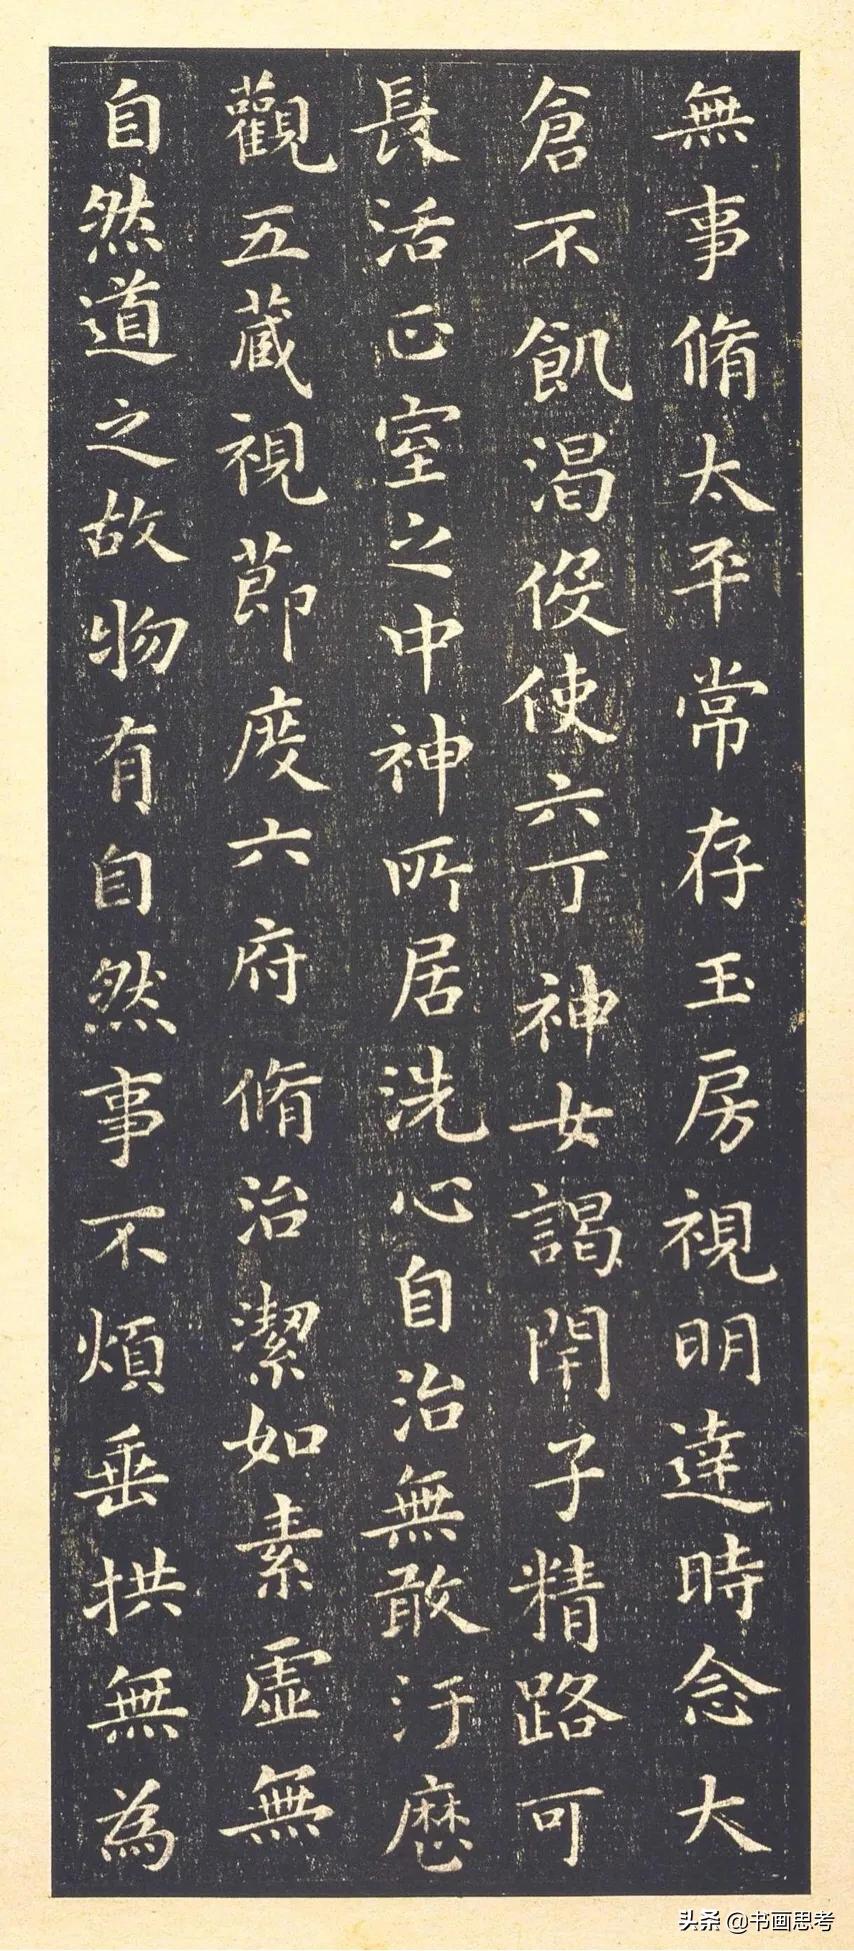 無事脩太平常存玉房視明達時念大
倉不飢渴伇使六丁神女謁閇子精路可
長活正室之中神所居洗心自治無敢汙歴
觀五藏視莭度六府脩治潔如素虚無
自然道之故物有自然事不煩垂拱無為
头条 @书画思考